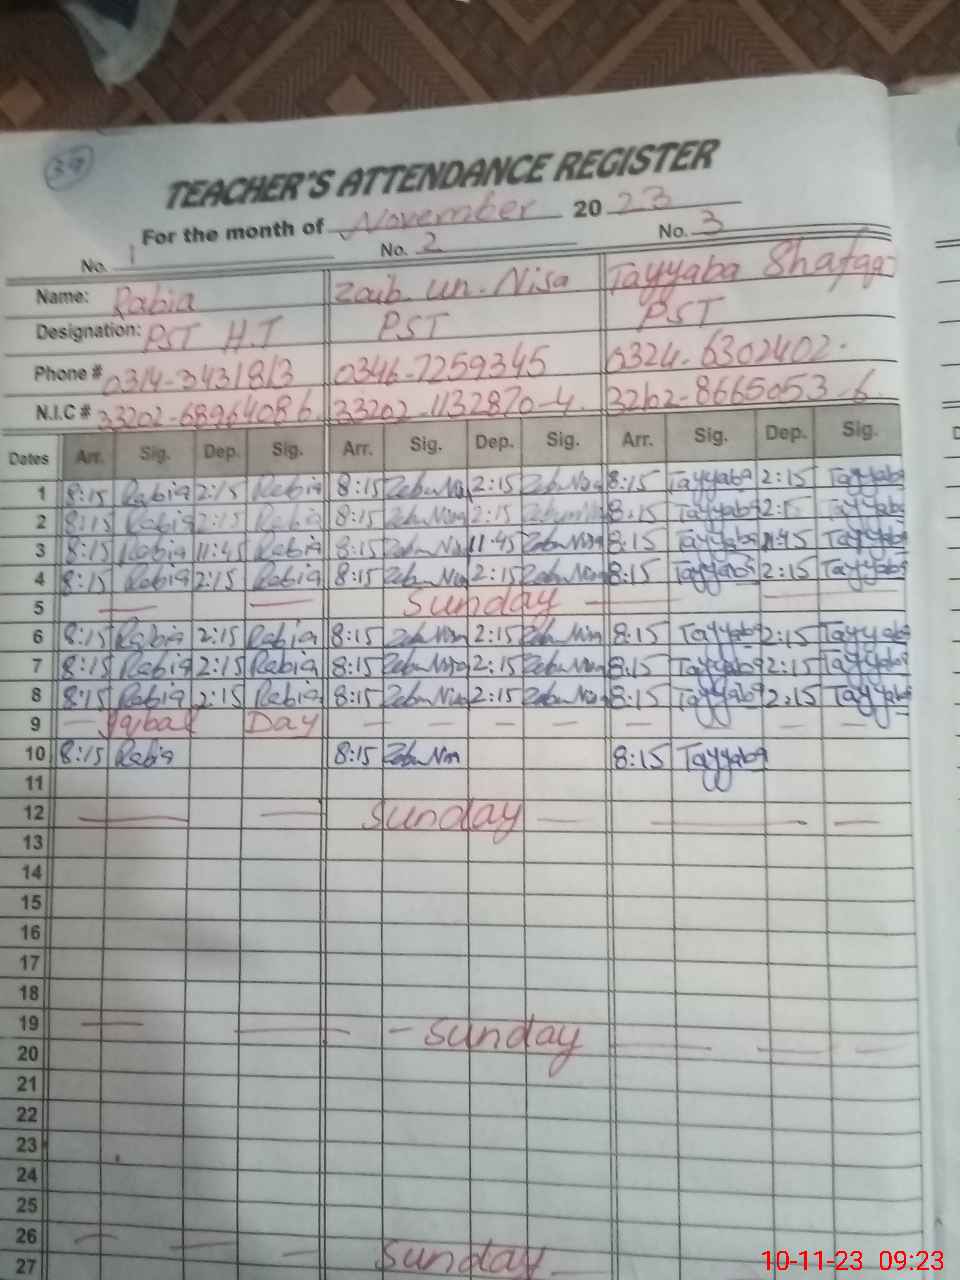 39
TEACHER'S ATTENDANCE REGISTER
For the month of November 20 23
No. 1 No. 2 No. 3
Name: Rabia Zaib un. Nisa Tayyaba Shafaq
Designation: PST H.T PST PST
Phone # 0314-3431813 0346-7259345 0324-6302402.
N.I.C # 33202-6896408 6 33202-1132870-4 3202-8665053-6
Dates Arr. Sig. Dep. Sig. Arr. Sig. Dep. Sig. Arr. Sig. Dep. Sig.
1 8:15 Rabia 2:15 Rabia 8:15 2:15 8:15 Tayyaba 2:15 Tayyaba
2 8:15 Rabia 2:15 Rabia 8:15 2:15 8:15 Tayyaba Tayyaba
3 8:15 Rabia 11:45 Rabia 8:15 11:45 8:15 Tayyaba 11:45 Tayyaba
4 8:15 Rabia 2:15 Rabia 8:15 2:15 8:15 Tayyaba 2:15 Tayyaba
5 — — Sunday — —
6 8:15 Rabia 2:15 Rabia 8:15 2:15 8:15 Tayyaba 2:15 Tayyaba
7 8:15 Rabia 2:15 Rabia 8:15 2:15 8:15 Tayyaba 2:15 Tayyaba
8 8:15 Rabia 2:15 Rabia 8:15 2:15 8:15 Tayyaba 2:15 Tayyaba
9 — Iqbal Day — — — — — — — —
10 8:15 Rabia 8:15 8:15 Tayyaba
11
12 — — Sunday — — —
13
14
15
16
17
18
19 — — - Sunday — — —
20
21
22
23
24
25
26 — — — Sunday —
27
10-11-23 09:23